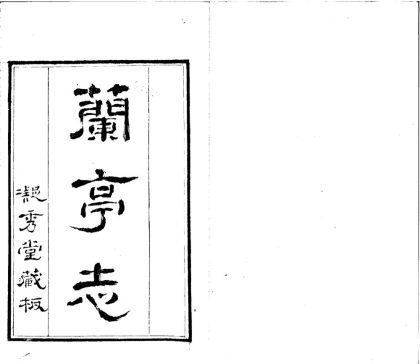 蘭亭志
凝秀堂藏板